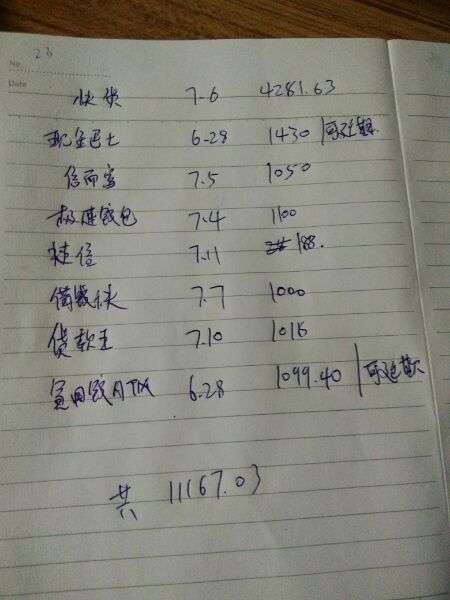 23
No
Date
快贷 7-6 4281.63
现金巴士 6-28 1430 可延期
信而富 7.5 1050
极速钱包 7.4 1100
捷信 7.11 188.
7.7 1000
贷款王 7.10 1016
6-28 1099.40
共 11167.03